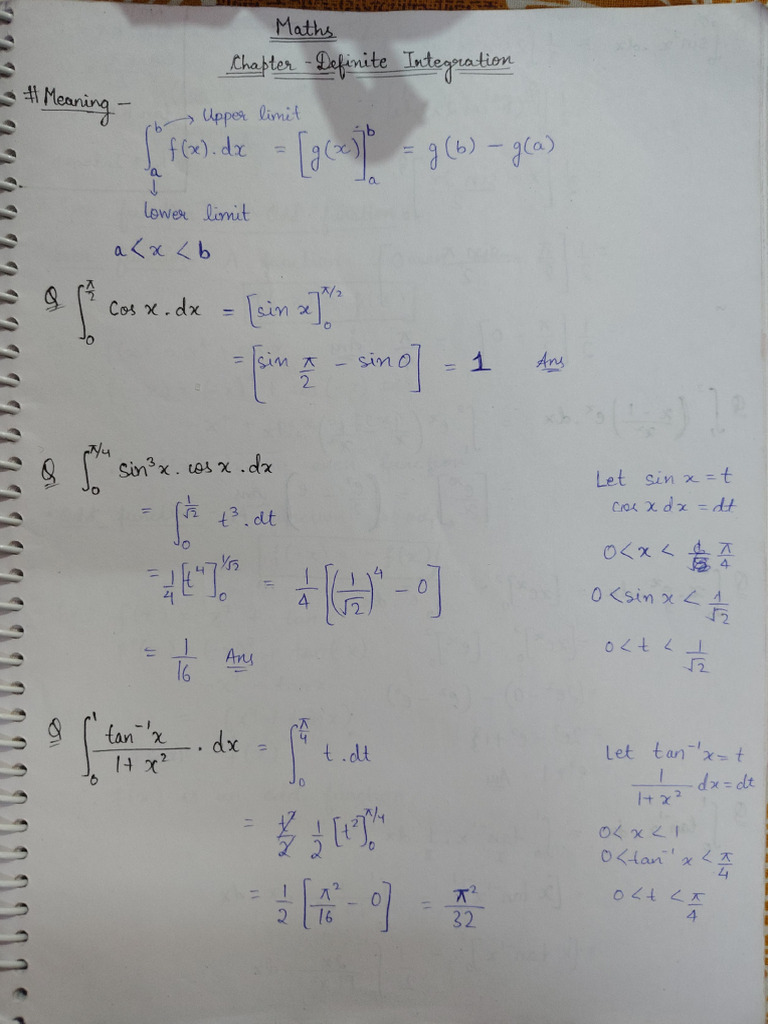 Maths
Chapter - Definite Integration
# Meaning -
∫_a^b f(x).dx = [g(x)]_a^b = g(b) - g(a)
b → Upper limit
a ↓ lower limit
a < x < b
Q ∫_0^{π/2} cos x . dx = [sin x]_0^{π/2}
= [sin π/2 - sin 0] = 1 Ans
Q ∫_0^{π/4} sin³x . cos x . dx
= ∫_0^{1/√2} t³ . dt
= 1/4 [t⁴]_0^{1/√2} = 1/4 [(1/√2)⁴ - 0]
= 1/16 Ans
Let sin x = t
cos x dx = dt
0 < x < π/4
0 < sin x < 1/√2
0 < t < 1/√2
Q ∫_0^1 tan⁻¹x / 1 + x² . dx = ∫_0^{π/4} t . dt
= 1/2 [t²]_0^{π/4}
= 1/2 [π²/16 - 0] = π²/32
Let tan⁻¹x = t
1/1 + x² dx = dt
0 < x < 1
0 < tan⁻¹ x < π/4
0 < t < π/4